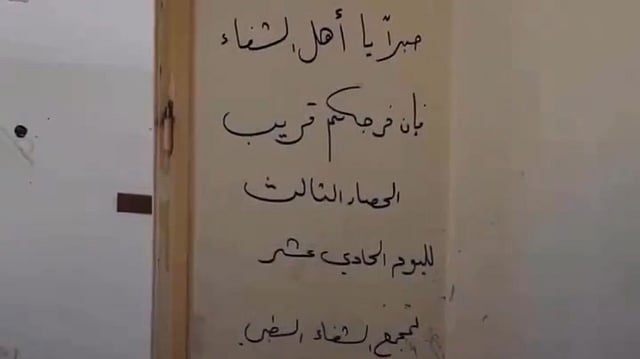 صبراً يا أهل الشفاء
فإن فرجكم قريب
الحصار الثالث
لليوم الحادي عشر
لمجمع الشفاء الطبي